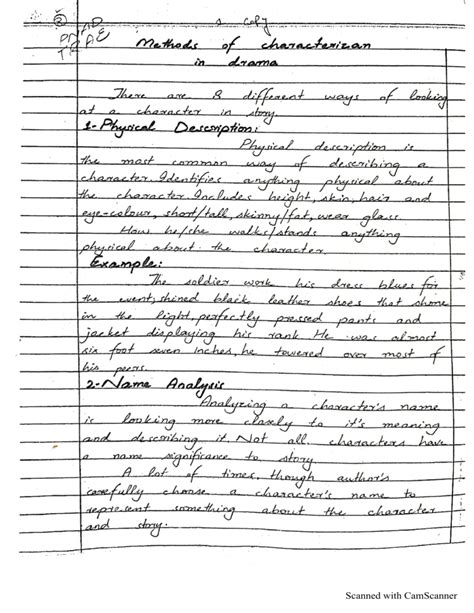 5 a copy
PN AD
TR AE
Methods of characterizan
in drama
There are 8 different ways of looking
at a character in story.
1-Physical Description:
Physical description is
the most common way of describing a
character. Identifies anything physical about
the character. Includes height, skin, hair and
eye-colour, short/tall, skinny/fat, wear glass.
How he/she walks/stands anything
physical about the character.
Example:
The soldier work his dress blues for
the event, shined black leather shoes that shone
in the light, perfectly pressed pants and
jacket displaying his rank He was almost
six foot seven inches, he towered over most of
his peers.
2-Name Analysis
Analyzing a character's name
is looking more closely to it's meaning
and describing it. Not all characters have
a name significance to story.
A lot of times, though author's
carefully choose a character's name to
represent something about the character
and story.
Scanned with CamScanner